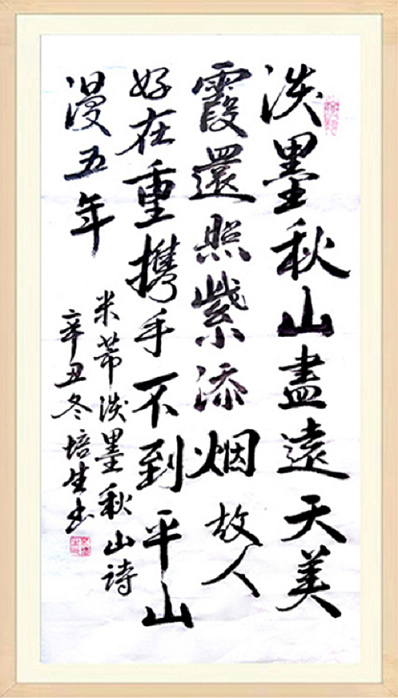 淡墨秋山盡遠天美
霞還照紫添烟故人
好在重携手不到平山
漫五年
米芾淡墨秋山詩
辛丑冬培生书